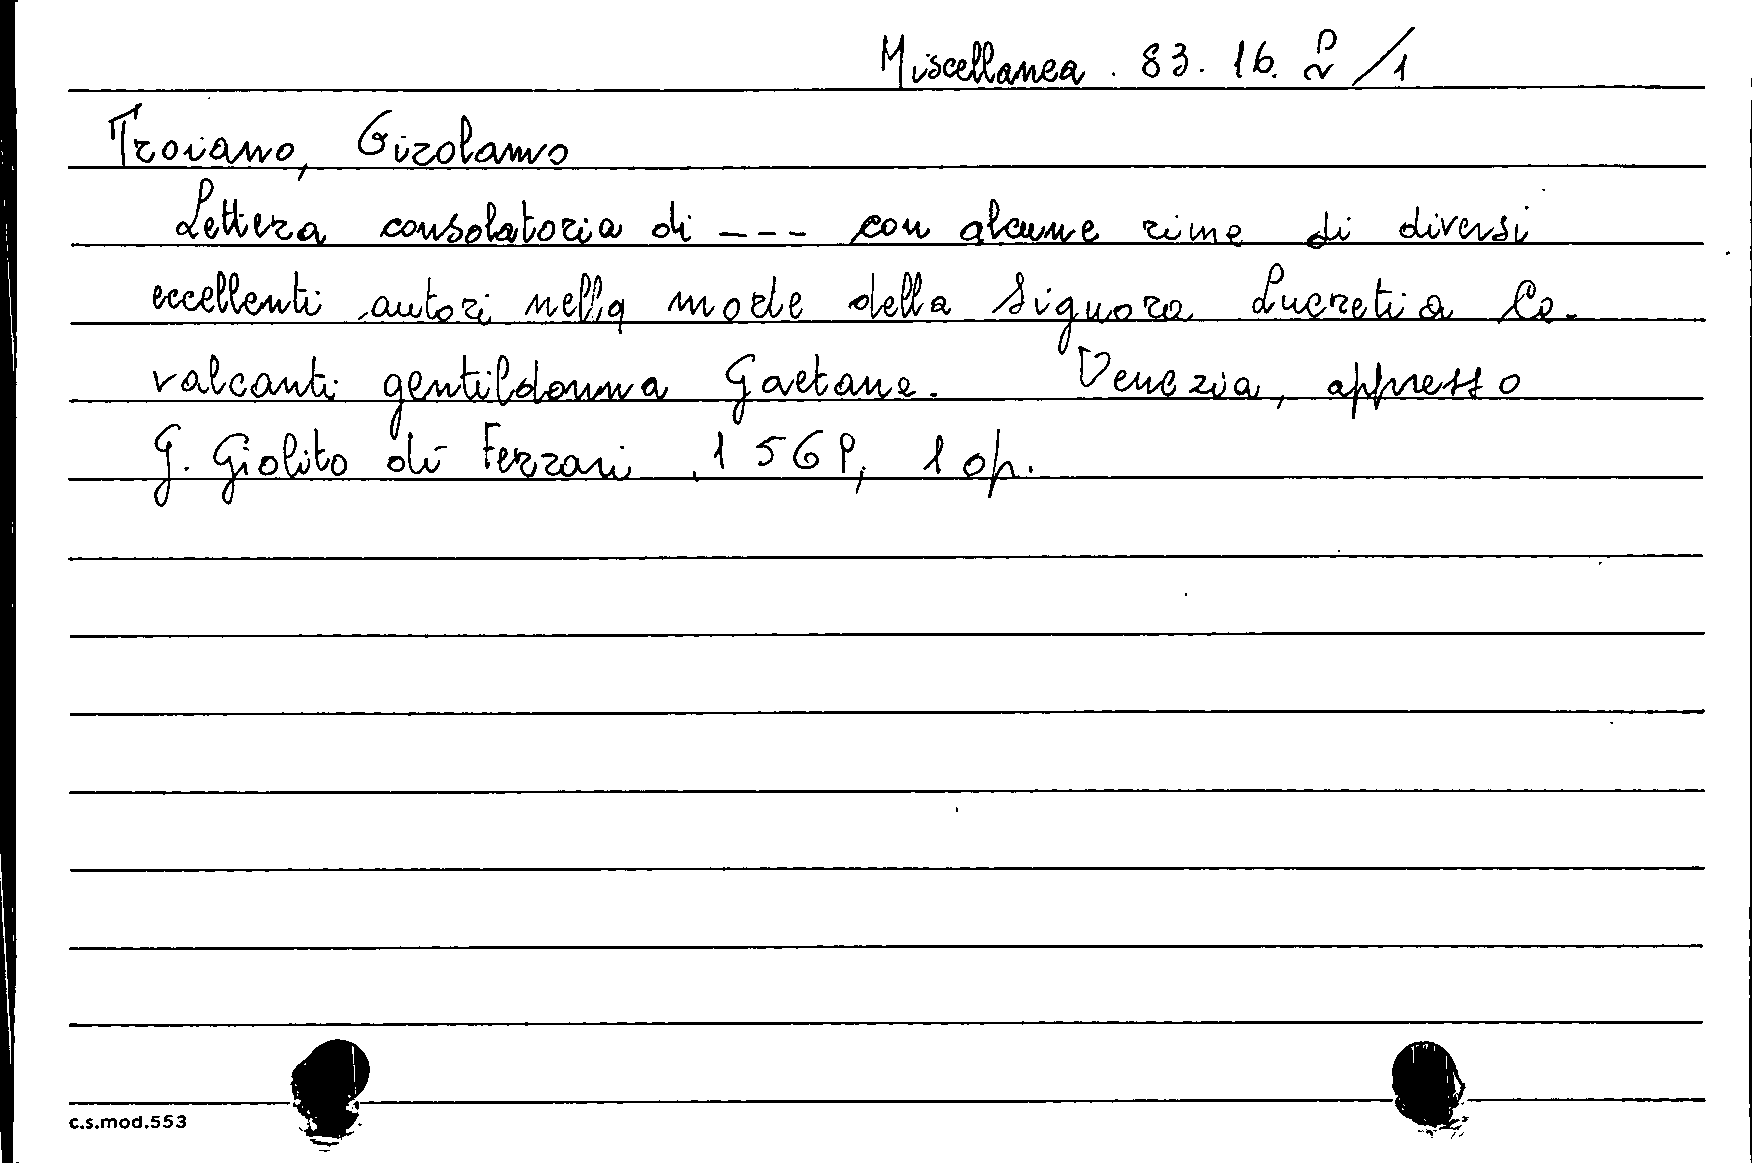 Miscellanea. 83. 16. 2/1
Troiano, Girolamo
Lettera consolatoria di --- con alcune rime di diversi
eccellenti autori nella morte della Signora Lucretia Ca-
valcanti gentildonna Gaetana. Venezia, appresso
G. Giolito di Ferrari, 1569, 1 op.
c.s.mod.553